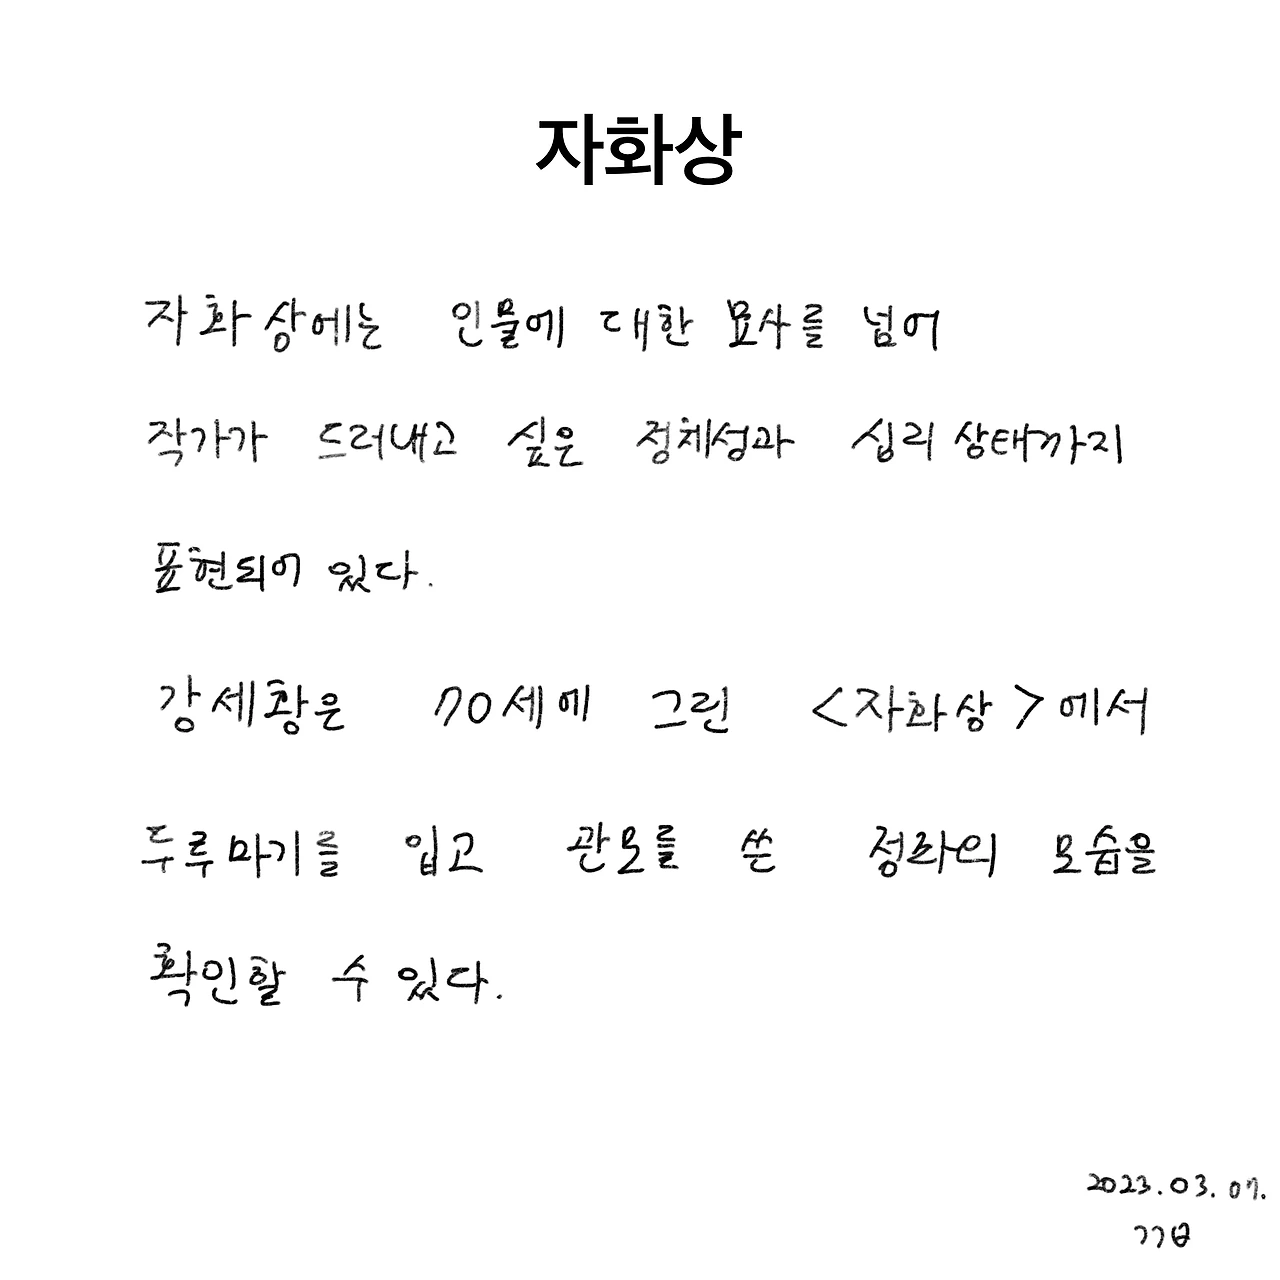 자화상
자화상에는 인물에 대한 묘사를 넘어
작가가 드러내고 싶은 정체성과 심리 상태까지
표현되어 있다.
강세황은 70세에 그린 <자화상>에서
두루마기를 입고 관모를 쓴 정좌의 모습을
확인할 수 있다.
2023.03.07.